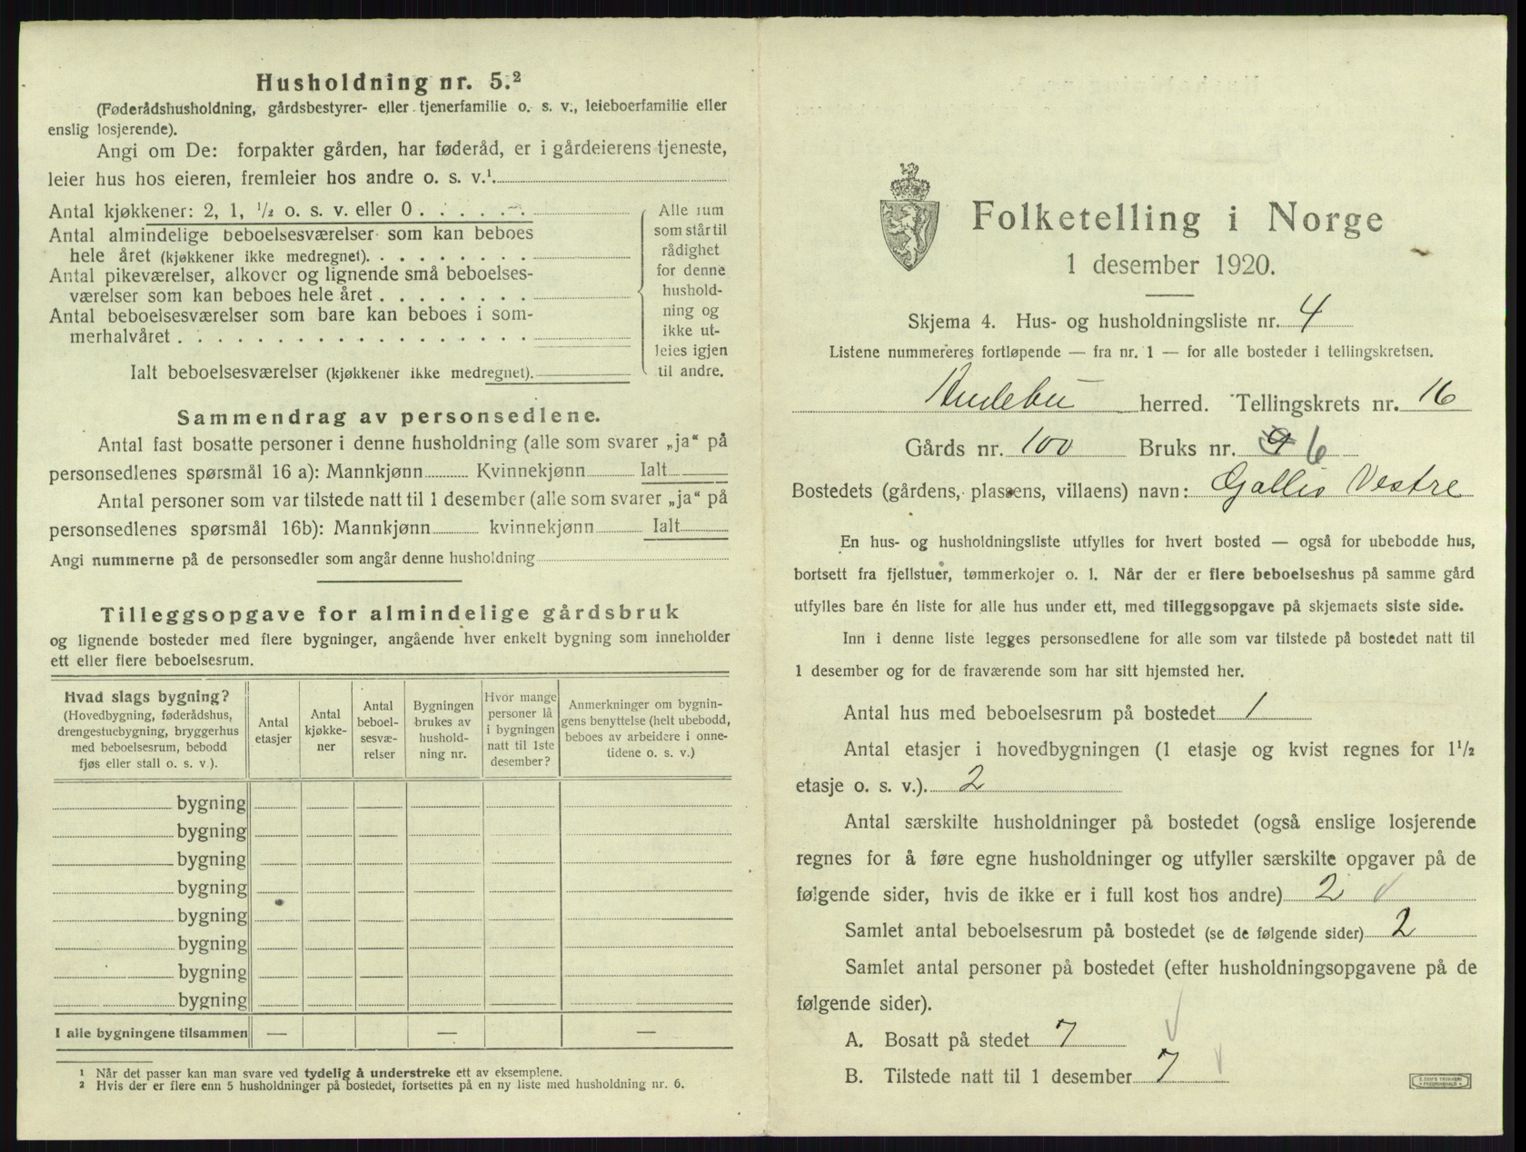 Husholdning nr. 5.²
(Føderådshusholdning, gårdsbestyrer- eller tjenerfamilie o. s. v., leieboerfamilie eller
enslig losjerende).
Angi om De: forpakter gården, har føderåd, er i gårdeierens tjeneste,
leier hus hos eieren, fremleier hos andre o. s. v.¹
Antal kjøkkener: 2, 1, ½ o. s. v. eller 0
Antal almindelige beboelsesværelser som kan beboes
hele året (kjøkkener ikke medregnet).
Antal pikeværelser, alkover og lignende små beboelses-
værelser som kan beboes hele året
Antal beboelsesværelser som bare kan beboes i som-
merhalvåret
Ialt beboelsesværelser (kjøkkener ikke medregnet).
Alle rum
som står til
rådighet
for denne
hushold-
ning og
ikke ut-
leies igjen
til andre.
Sammendrag av personsedlene.
Antal fast bosatte personer i denne husholdning (alle som svarer „ja“ på
personsedlenes spørsmål 16 a): Mannkjønn Kvinnekjønn Ialt
Antal personer som var tilstede natt til 1 desember (alle som svarer „ja“ på
personsedlenes spørsmål 16b): Mannkjønn kvinnekjønn Ialt
Angi nummerne på de personsedler som angår denne husholdning
Tilleggsopgave for almindelige gårdsbruk
og lignende bosteder med flere bygninger, angående hver enkelt bygning som inneholder
ett eller flere beboelsesrum.
Hvad slags bygning?
(Hovedbygning, føderådshus,
drengestuebygning, bryggerhus
med beboelsesrum, bebodd
fjøs eller stall o. s. v.).
Antal
etasjer
Antal
kjøkke-
ner
Antal
beboel-
sesvæ-
relser
Bygningen
brukes av
hushold-
ning nr.
Hvor mange
personer lå
i bygningen
natt til 1ste
desember?
Anmerkninger om bygnin-
gens benyttelse (helt ubebodd,
beboes av arbeidere i onne-
tidene o. s. v.)
bygning
bygning
bygning
bygning
bygning
bygning
bygning
bygning
I alle bygningene tilsammen — — —
¹ Når det passer kan man svare ved tydelig å understreke ett av eksemplene.
² Hvis der er flere enn 5 husholdninger på bostedet, fortsettes på en ny liste med husholdning nr. 6.
Folketelling i Norge
1 desember 1920.
Skjema 4. Hus- og husholdningsliste nr. 4
Listene nummereres fortløpende — fra nr. 1 — for alle bosteder i tellingskretsen.
Andebu herred. Tellingskrets nr. 16
Gårds nr. 100 Bruks nr. 6
Bostedets (gårdens, plassens, villaens) navn: Gallis Vestre
En hus- og husholdningsliste utfylles for hvert bosted — også for ubebodde hus,
bortsett fra fjellstuer, tømmerkojer o. l. Når der er flere beboelseshus på samme gård
utfylles bare én liste for alle hus under ett, med tilleggsopgave på skjemaets siste side.
Inn i denne liste legges personsedlene for alle som var tilstede på bostedet natt til
1 desember og for de fraværende som har sitt hjemsted her.
Antal hus med beboelsesrum på bostedet 1
Antal etasjer i hovedbygningen (1 etasje og kvist regnes for 1½
etasje o. s. v.). 2
Antal særskilte husholdninger på bostedet (også enslige losjerende
regnes for å føre egne husholdninger og utfyller særskilte opgaver på de
følgende sider, hvis de ikke er i full kost hos andre) 2
Samlet antal beboelsesrum på bostedet (se de følgende sider) 2
Samlet antal personer på bostedet (efter husholdningsopgavene på de
følgende sider).
A. Bosatt på stedet 7
B. Tilstede natt til 1 desember 7